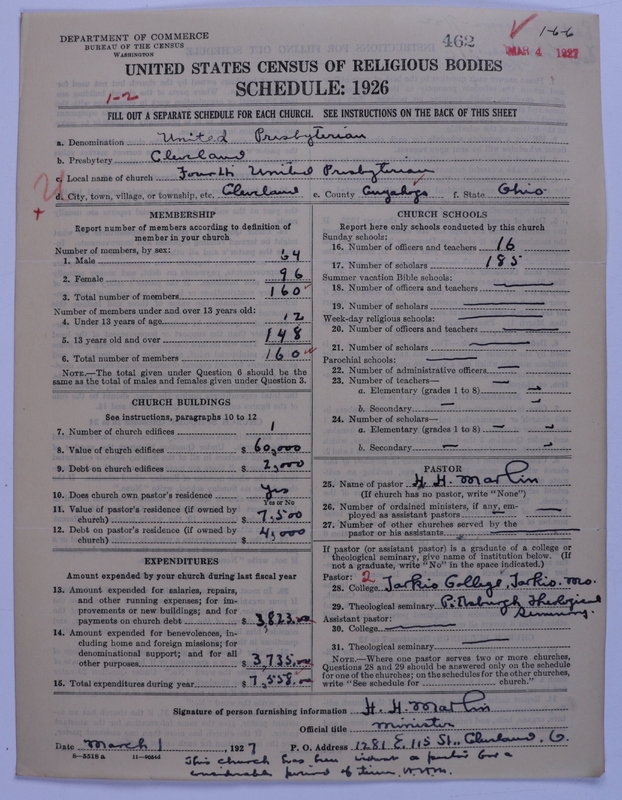 DEPARTMENT OF COMMERCE
BUREAU OF THE CENSUS
WASHINGTON
462
MAR 4 1927
1-6-6
UNITED STATES CENSUS OF RELIGIOUS BODIES
SCHEDULE: 1926
1-2
FILL OUT A SEPARATE SCHEDULE FOR EACH CHURCH. SEE INSTRUCTIONS ON THE BACK OF THIS SHEET
a. Denomination United Presbyterian
b. Presbytery Cleveland
c. Local name of church Fourth United Presbyterian
d. City, town, village, or township, etc. Cleveland e. County Cuyahoga f. State Ohio
MEMBERSHIP
Report number of members according to definition of
member in your church
Number of members, by sex:
1. Male 64
2. Female 96
3. Total number of members 160
Number of members under and over 13 years old:
4. Under 13 years of age 12
5. 13 years old and over 148
6. Total number of members 160
NOTE.—The total given under Question 6 should be
the same as the total of males and females given under Question 3.
CHURCH BUILDINGS
See instructions, paragraphs 10 to 12
7. Number of church edifices 1
8. Value of church edifices $ 60,000
9. Debt on church edifices $ 2,000
10. Does church own pastor's residence yes
Yes or No
11. Value of pastor's residence (if owned by
church) $ 7,500
12. Debt on pastor's residence (if owned by
church) $ 4,000
EXPENDITURES
Amount expended by your church during last fiscal year
13. Amount expended for salaries, repairs,
and other running expenses; for im-
provements or new buildings; and for
payments on church debt $ 3,823.00
14. Amount expended for benevolences, in-
cluding home and foreign missions; for
denominational support; and for all
other purposes $ 3,735.00
15. Total expenditures during year $ 7,558.00
CHURCH SCHOOLS
Report here only schools conducted by this church
Sunday schools:
16. Number of officers and teachers 16
17. Number of scholars 185
Summer vacation Bible schools:
18. Number of officers and teachers —
19. Number of scholars —
Week-day religious schools: —
20. Number of officers and teachers —
21. Number of scholars —
Parochial schools: —
22. Number of administrative officers —
23. Number of teachers— —
a. Elementary (grades 1 to 8) —
b. Secondary —
24. Number of scholars—
a. Elementary (grades 1 to 8) —
b. Secondary —
PASTOR
25. Name of pastor H. H. Marlin
(If church has no pastor, write "None")
26. Number of ordained ministers, if any, em-
ployed as assistant pastors —
27. Number of other churches served by the
pastor or his assistants —
If pastor (or assistant pastor) is a graduate of a college or
theological seminary, give name of institution below. (If
not a graduate, write "No" in the space indicated.)
Pastor: 2
28. College Tarkio College, Tarkio. Mo.
29. Theological seminary Pittsburgh Theological
Seminary.
Assistant pastor:
30. College —
31. Theological seminary —
NOTE.—Where one pastor serves two or more churches,
Questions 28 and 29 should be answered only on the schedule
for one of the churches; on the schedules for the other churches,
write "See schedule for church."
Signature of person furnishing information H. H. Marlin
Official title Minister
Date March 1, 1927 P. O. Address 1281 E. 115 St., Cleveland, O.
8-5518 a 11-9034d
This church has been without a pastor for a
considerable period of time. H.H.M.